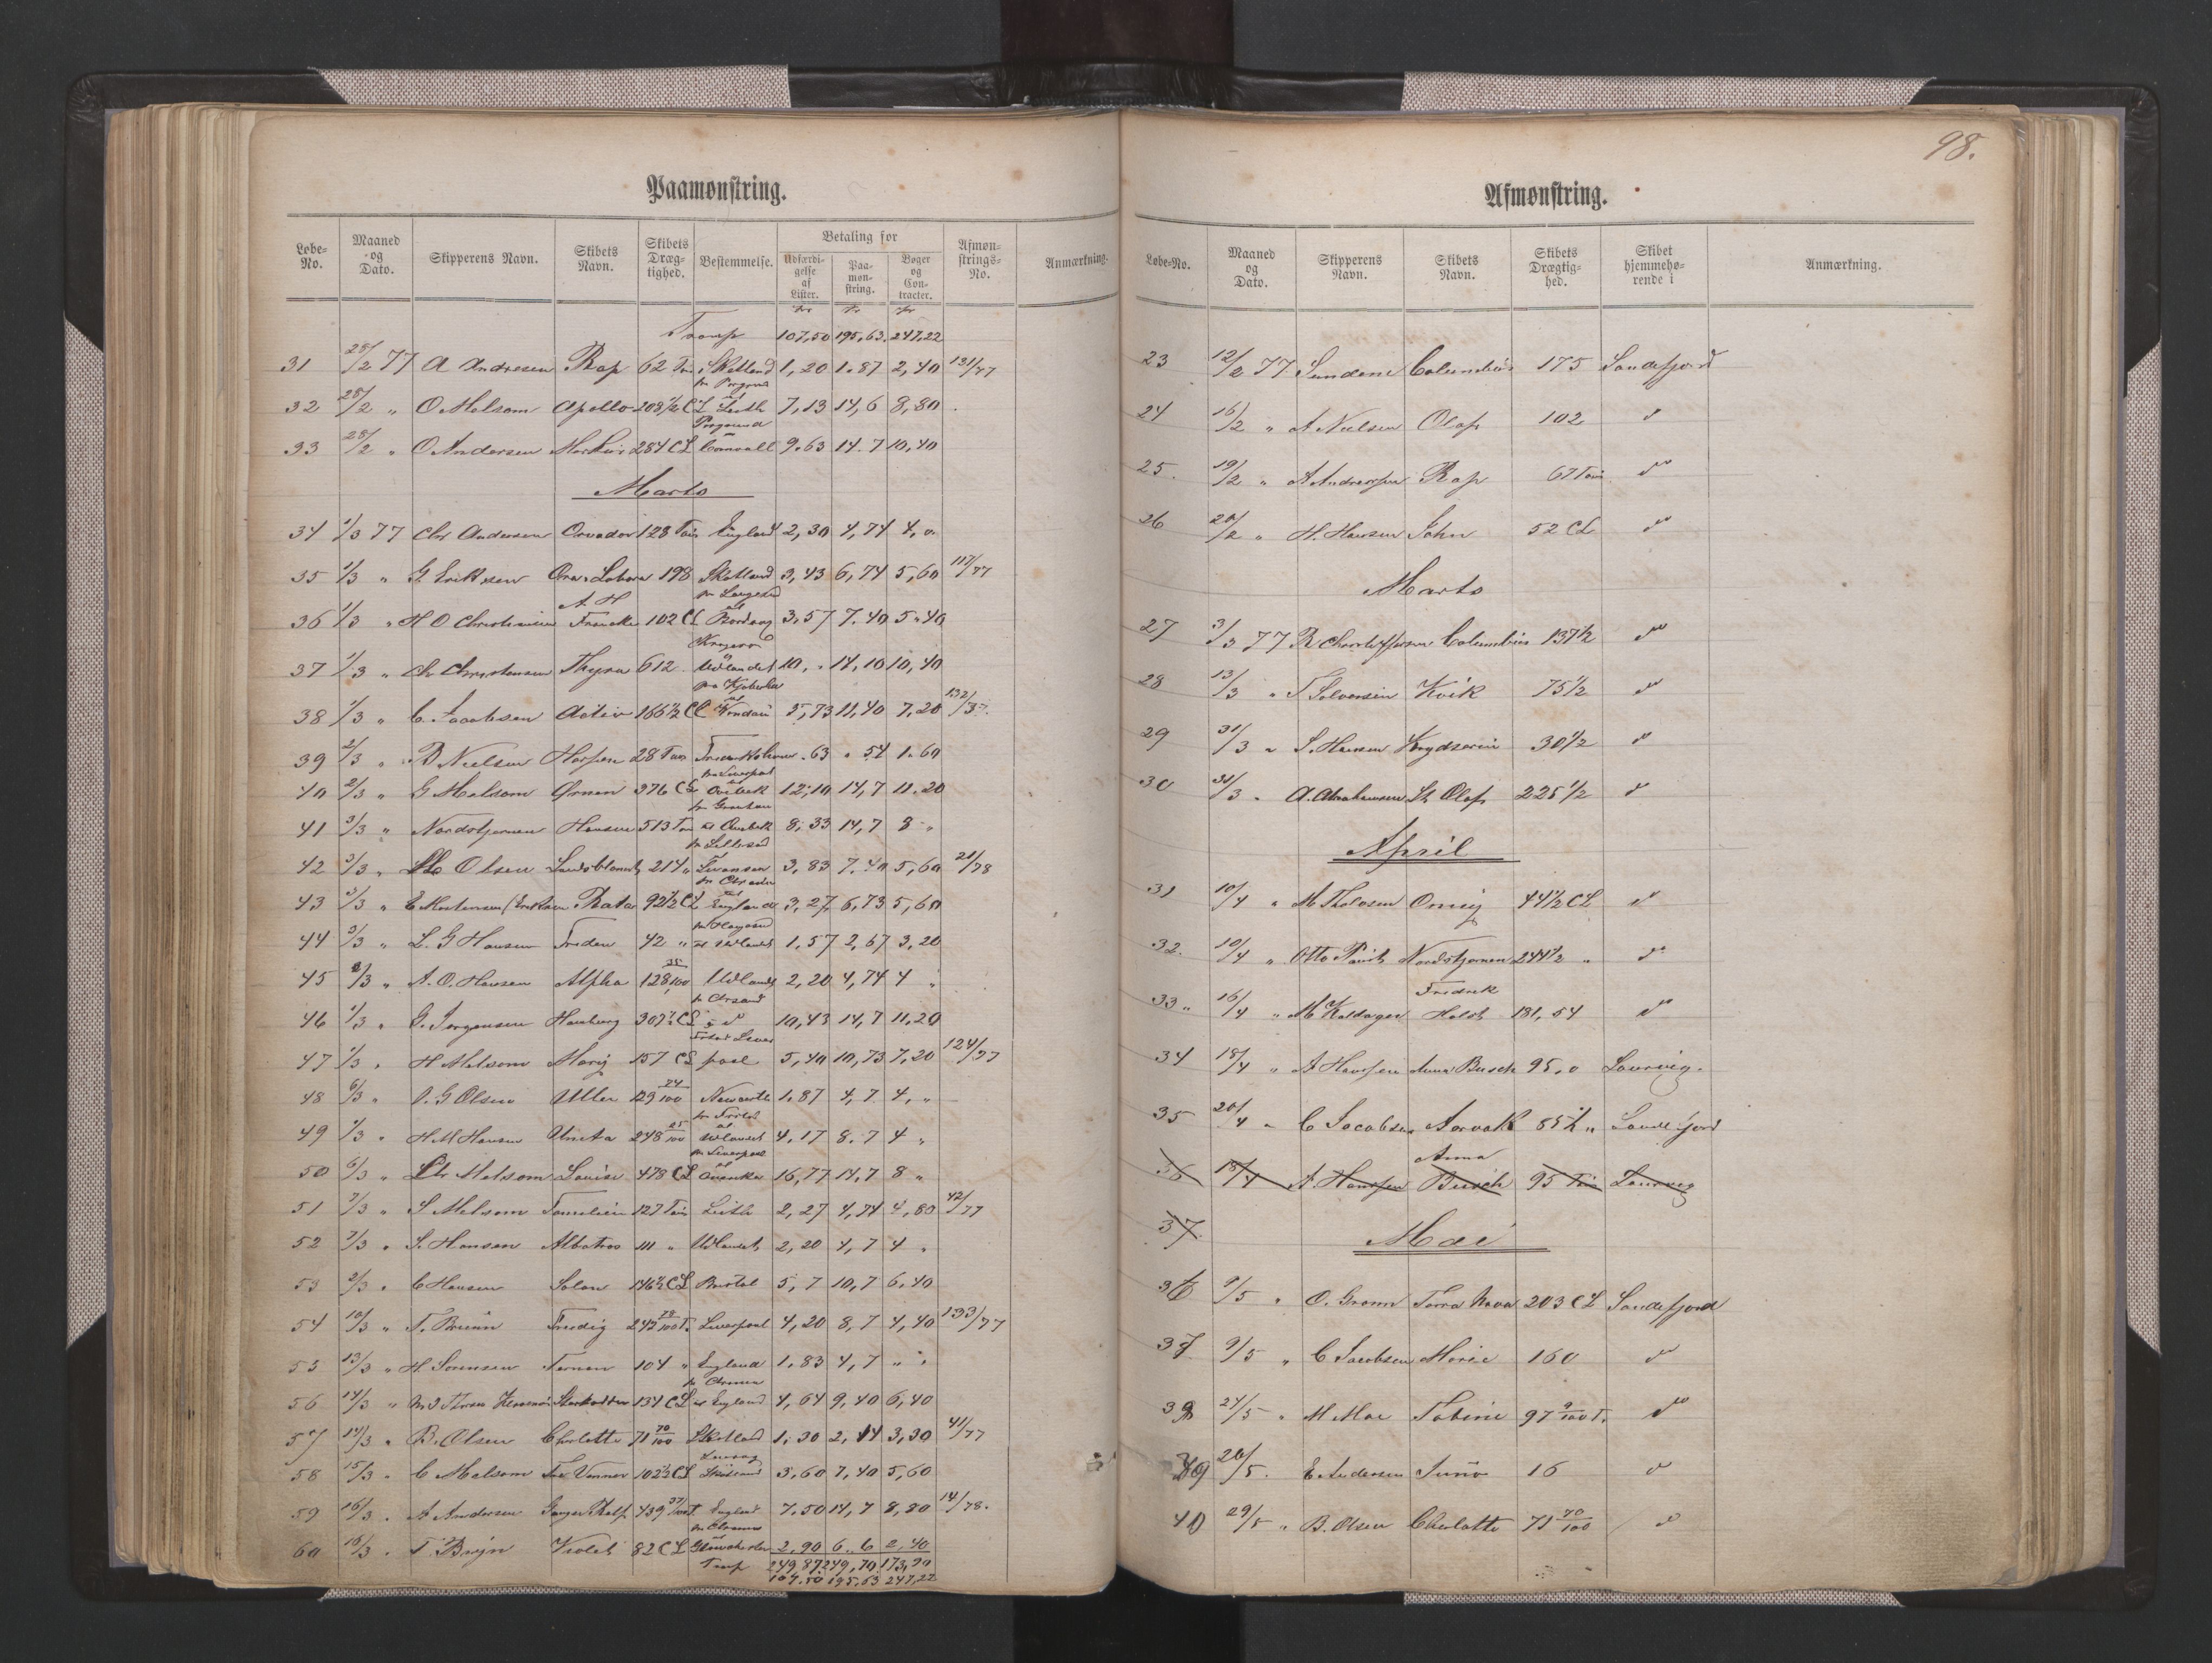 98.
Paamønstring.
Løbe-No. Maaned og Dato. Skipperens Navn. Skibets Navn. Skibets Dræg-tighed. Bestemmelse. Betaling for Udfærdi-gelse af Lister. Paa-møn-string. Bøger og Con-tracter. Afmøn-strings-No. Anmærkning.
Transp 107,50 195,63 247,22
31 28/2 77 A Andresen Rap 62 Tons Shetland 1,20 1.87 2,40 131/77
32 28/2 " O Melsom Apollo 208 1/2 CL Leith 7,13 14,6 8,80
33 28/2 " O Andersen Merkur 284 CL Cornvall 9.63 14.7 10,40
Marts
34 1/3 77 Chr Andersen 128 Tons England 2,30 4,74 4,0
35 1/3 " G. Eriksen Ora & Labora 198 Shetland 3,43 6,74 5,60 117/77
36 1/3 " H O Christensen A. H Francke 102 CL 3.57 7.40 5.40
37 1/3 " Chr Christensen Thyra 612 Udlandet 10,. 14,10 10,40
38 1/3 " C. Jacobsen Activ 166 1/2 CL 5,73 11,40 7,20
39 2/3 " B Nielsen 28 Tons .63 .54 1.60
40 2/3 " G Melsom Ørnen 376 CL 12,10 14,7 11.20
41 3/3 " Nordstjernen Hansen 513 Tons 8,33 14,7 8 "
42 3/3 " Olsen 214 " Svansea 3,83 7.40 5,60 21/78
43 3/3 " Rota 92 1/2 CL England 3,27 6,73 5,60
44 3/3 " L. G Hansen Freden 42 " Udlandet 1.57 2,67 3,20
45 3/3 " A. O. Hansen Alpha 128 35/100 Udlandet 2,20 4,74 4 "
46 1/3 " G. Jørgensen Hamburg 307 1/2 CL 10,43 14,7 11,20
47 1/3 " H Melsom Mary 157 CL 5,40 10,73 7,20 124/77
48 6/3 " O. G Olsen Uller 129 24/100 Newcastle 1.87 4,7 4,"
49 1/3 " H M Hansen Unita 248 25/100 Udlandet 4,17 8.7 4 "
50 6/3 " Chr Melsom Louise 478 CL 16,77 14,7 8 "
51 7/3 " S Melsom Familien 127 Tons Leith 2,27 4,74 4,80 42/77
52 7/3 " S. Hansen Albatros 111 " Udlandet 2,20 4,7 4 "
53 2/3 " C Hansen Solon 146 1/2 CL Bristol 5,7 10,7 6,40
54 10/3 " T. Bruun Fredig 242 78/100 T. Liverpool 4,20 8,7 4,40 133/77
55 13/3 " H. Sørensen Ternen 104 " England 1.83 4,7 " "
56 14/3 " Stærkodder 134 CL England 4,64 9,40 6,40
57 14/3 " B. Olsen Charlotte 71 70/100 Shetland 1.30 2,14 3,30 41/77
58 15/3 " C Melsom Tre Venner 102 1/2 CL 3,60 7,40 5,60
59 16/3 " A Andersen Ganger Rolf 439 37/100 T England 7.50 14,7 8,80 14/78.
60 16/3 " T Bryn Violet 82 CL 2,90 6.6 2,40
Transp 249,87 249,70 173,90
107.50 195,63 247,22
Afmønstring.
Løbe-No. Maaned og Dato. Skipperens Navn. Skibets Navn. Skibets Drægtig-hed. Skibet hjemmehø-rende i Anmærkning.
23 12/2 77 Sundene Columbus 175 Sandefjord
24 16/2 " A Nielsen Olaf 102 do
25. 19/2 " A Andressen Rap 67 Tons do
26 20/2 " H. Hansen John 52 CL do
Marts
27 3/3 77 R Christoffersen Columbus 137 1/2 do
28 13/3 " T Solvensen Kvik 75 1/2 do
29 31/3 " S. Hansen Krydseren 30 1/2 do
30 31/3 " A. Abrahamsen St Olaf 225 1/2 do
April
31 10/4 " M Tholvsen 44 1/2 CL do
32. 10/4 " Otto Nordstjernen 244 1/2 " do
33 " 16/4 " M Kaldager Fredrik Holst 181,54 do
34 18/4 " A Hanssen Anna Busch 95,0 Laurvig.
35 20/4 " C Jacobsen Aarvak 85 1/2 " Sandefjord
36 18/4 A. Hanssen Anna Busch 95 Tons Laurvig
37.
Mai
36 9/5 " O. Grønn Terra Nova 203 CL Sandefjord
37 9/5 " C Jacobsen Marie 160 do
38 24/5 " M Moe Sabine 97 9/100 T. do
39 26/5. E Andersen Juno 16 do
40 29/5 " B. Olsen Charlotte 71 70/100 do